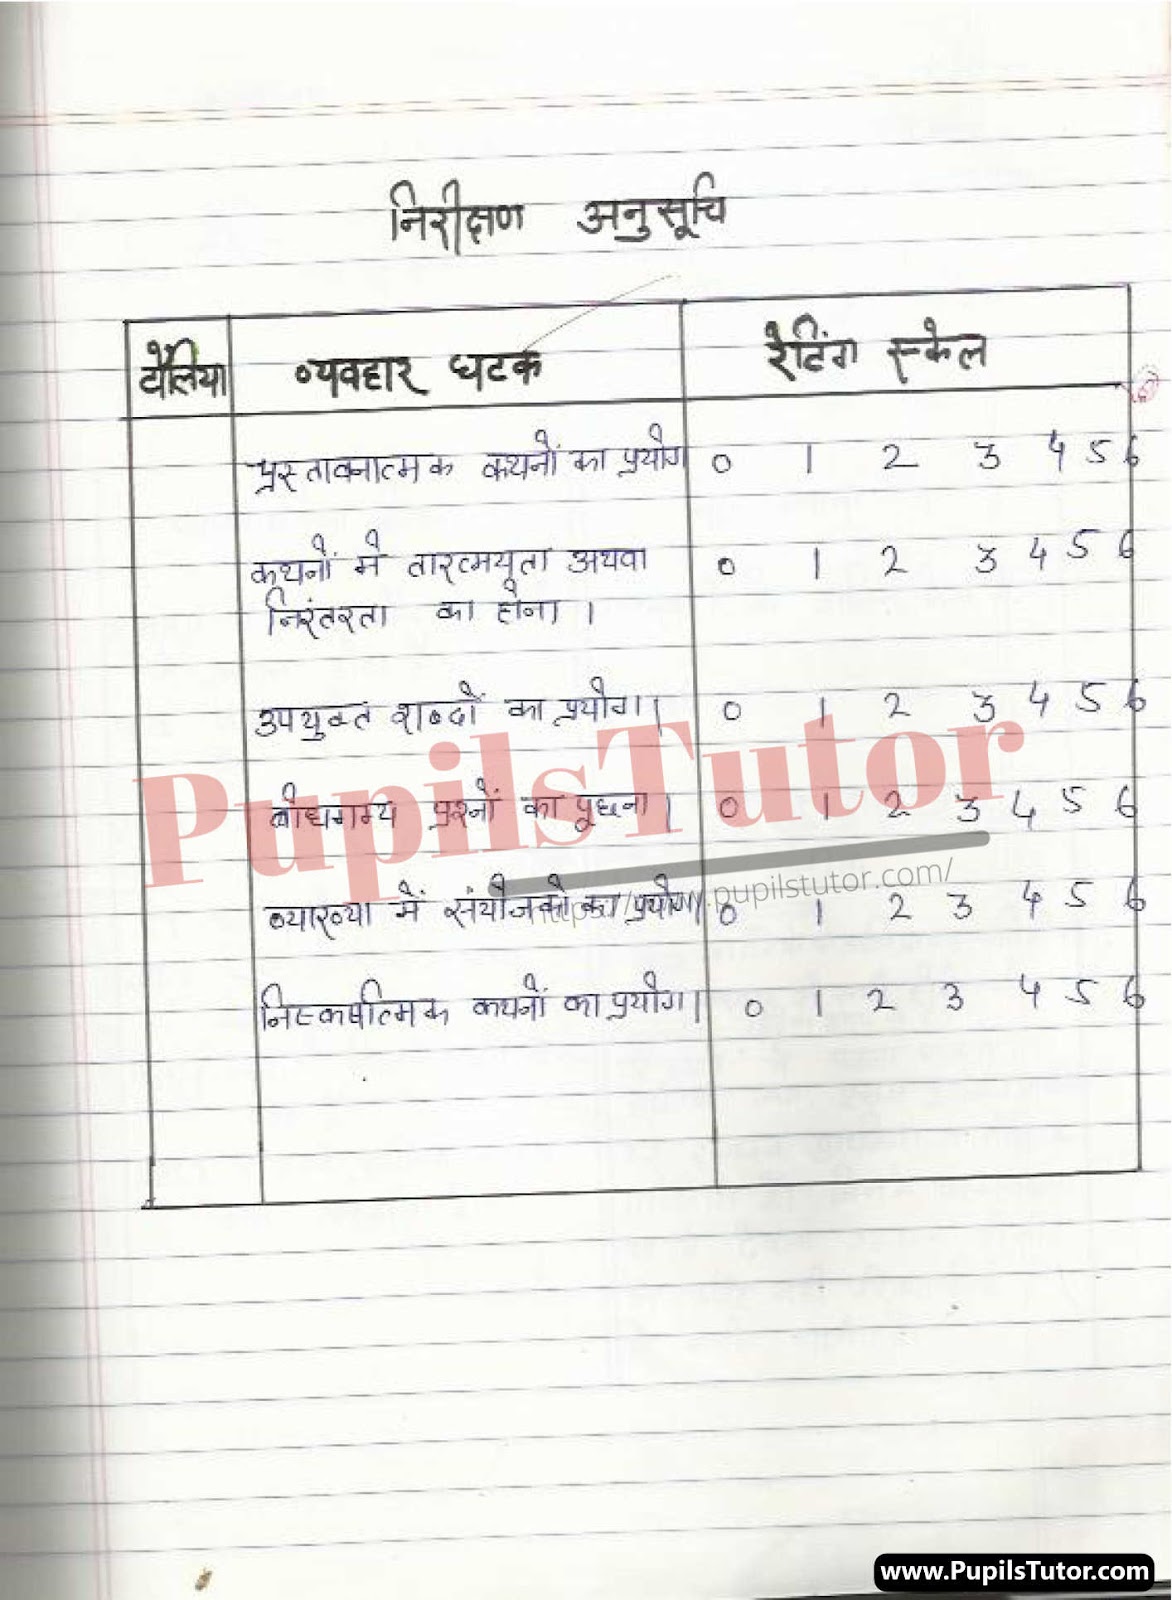 निरीक्षण अनुसूचि
टैलिया व्यवहार घटक रेटिंग स्केल
प्रस्तावनात्मक कथनों का प्रयोग 0 1 2 3 4 5 6
कथनों मे तारत्मयता अथवा 0 1 2 3 4 5 6
निरंतरता का होना ।
उपयुक्त शब्दों का प्रयोग । 0 1 2 3 4 5 6
बोधगम्य प्रश्नों का पूछना । 0 1 2 3 4 5 6
PupilsTutor
www.pupilstutor.com/
व्याख्या में संयोजको का प्रयोग । 0 1 2 3 4 5 6
निस्कर्षात्मक कथनों का प्रयोग । 0 1 2 3 4 5 6
www.PupilsTutor.com